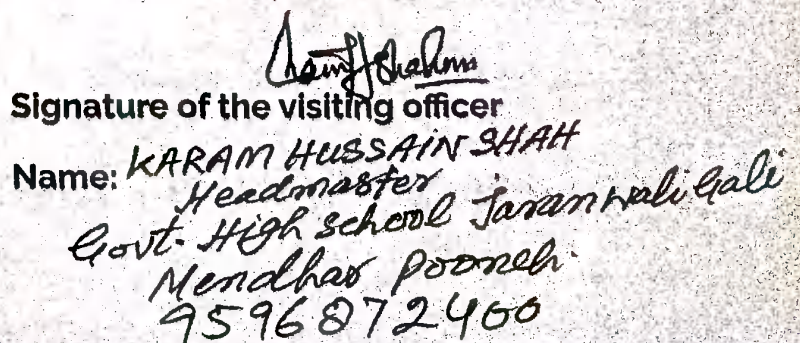 Signature of the visiting officer
Name: KARAM HUSSAIN SHAH
Headmaster
Govt. High School Jaran wali Gali
Mendhar Poonch.
9596872400